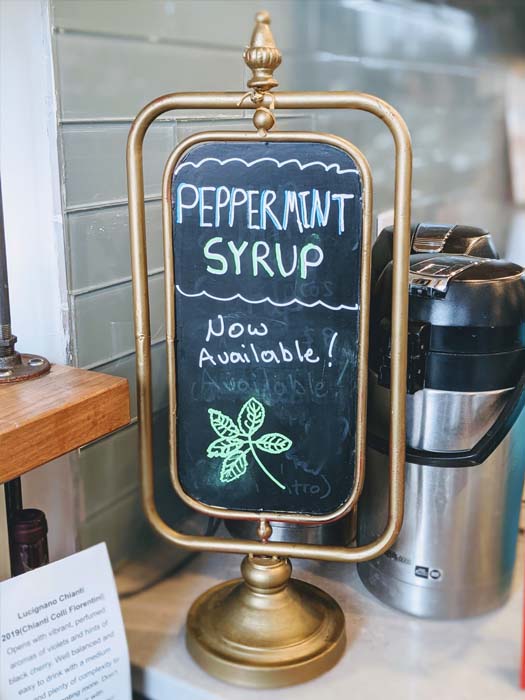 PEPPERMINT
SYRUP
Now
Available!
Lucignano Chianti
2019(Chianti Colli Fiorentini)
Opens with vibrant, perfumed
aromas of violets and hints of
black cherry. Well balanced and
easy to drink with a medium
and plenty of complexity to
more. Don't
with